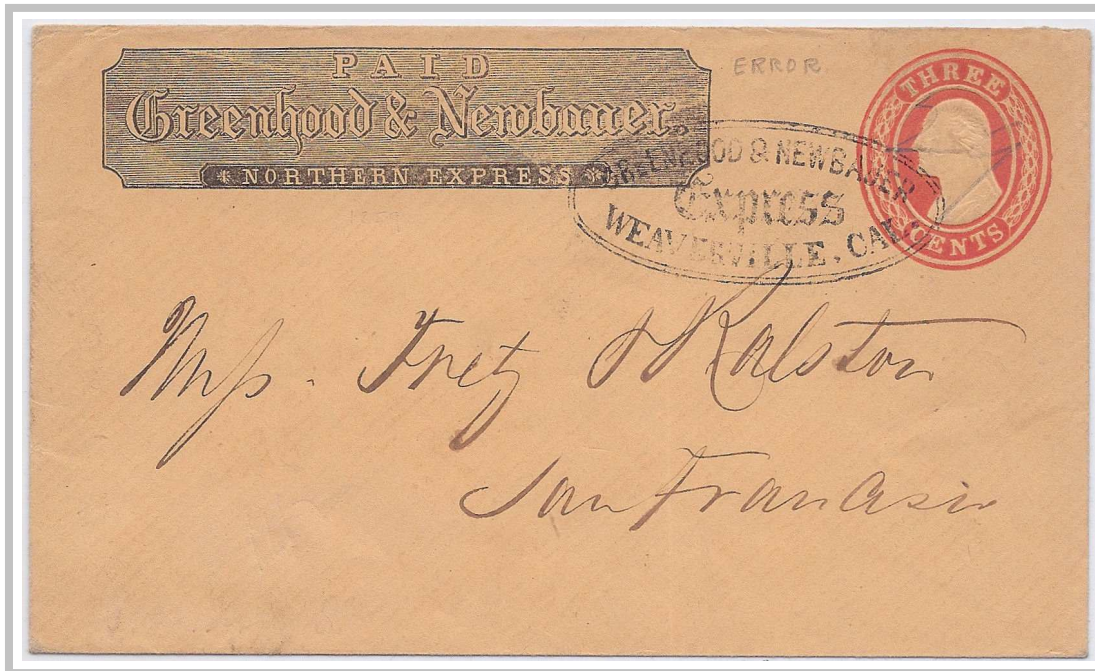 PAID
Greenhood & Newbauer's
* NORTHERN EXPRESS *
ERROR
THREE
CENTS
& NEWBAUER
Express
WEAVERVILLE, CAL.
1859
Fretz & Ralston
San Francisco